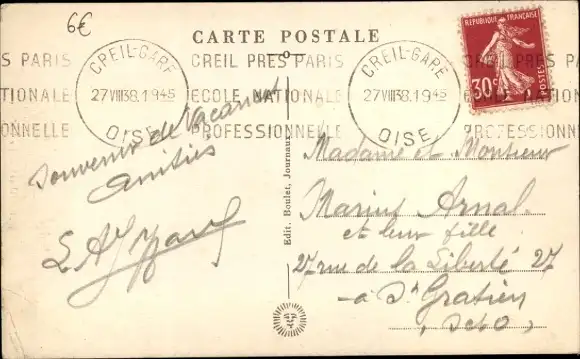 6€
CARTE POSTALE
REPUBLIQUE FRANÇAISE
30c
POSTES
PARIS
TIONALE
ONNELLE
CREIL-GARE
27 VIII 38. 1945
OISE
CREIL PRES PARIS
ECOLE NATIONALE
PROFESSIONNELLE
CREIL-GARE
27 VIII 38. 1945
OISE
CREIL PRES PARIS
ECOLE NATIONALE
PROFESSIONNEL
Souvenir de Vacances
Amitiés
Edit. Boulet, Journaux
Madame et Monsieur
Marius Arnal
et leur fille
27 rue de la Liberté 27
à St Gratien